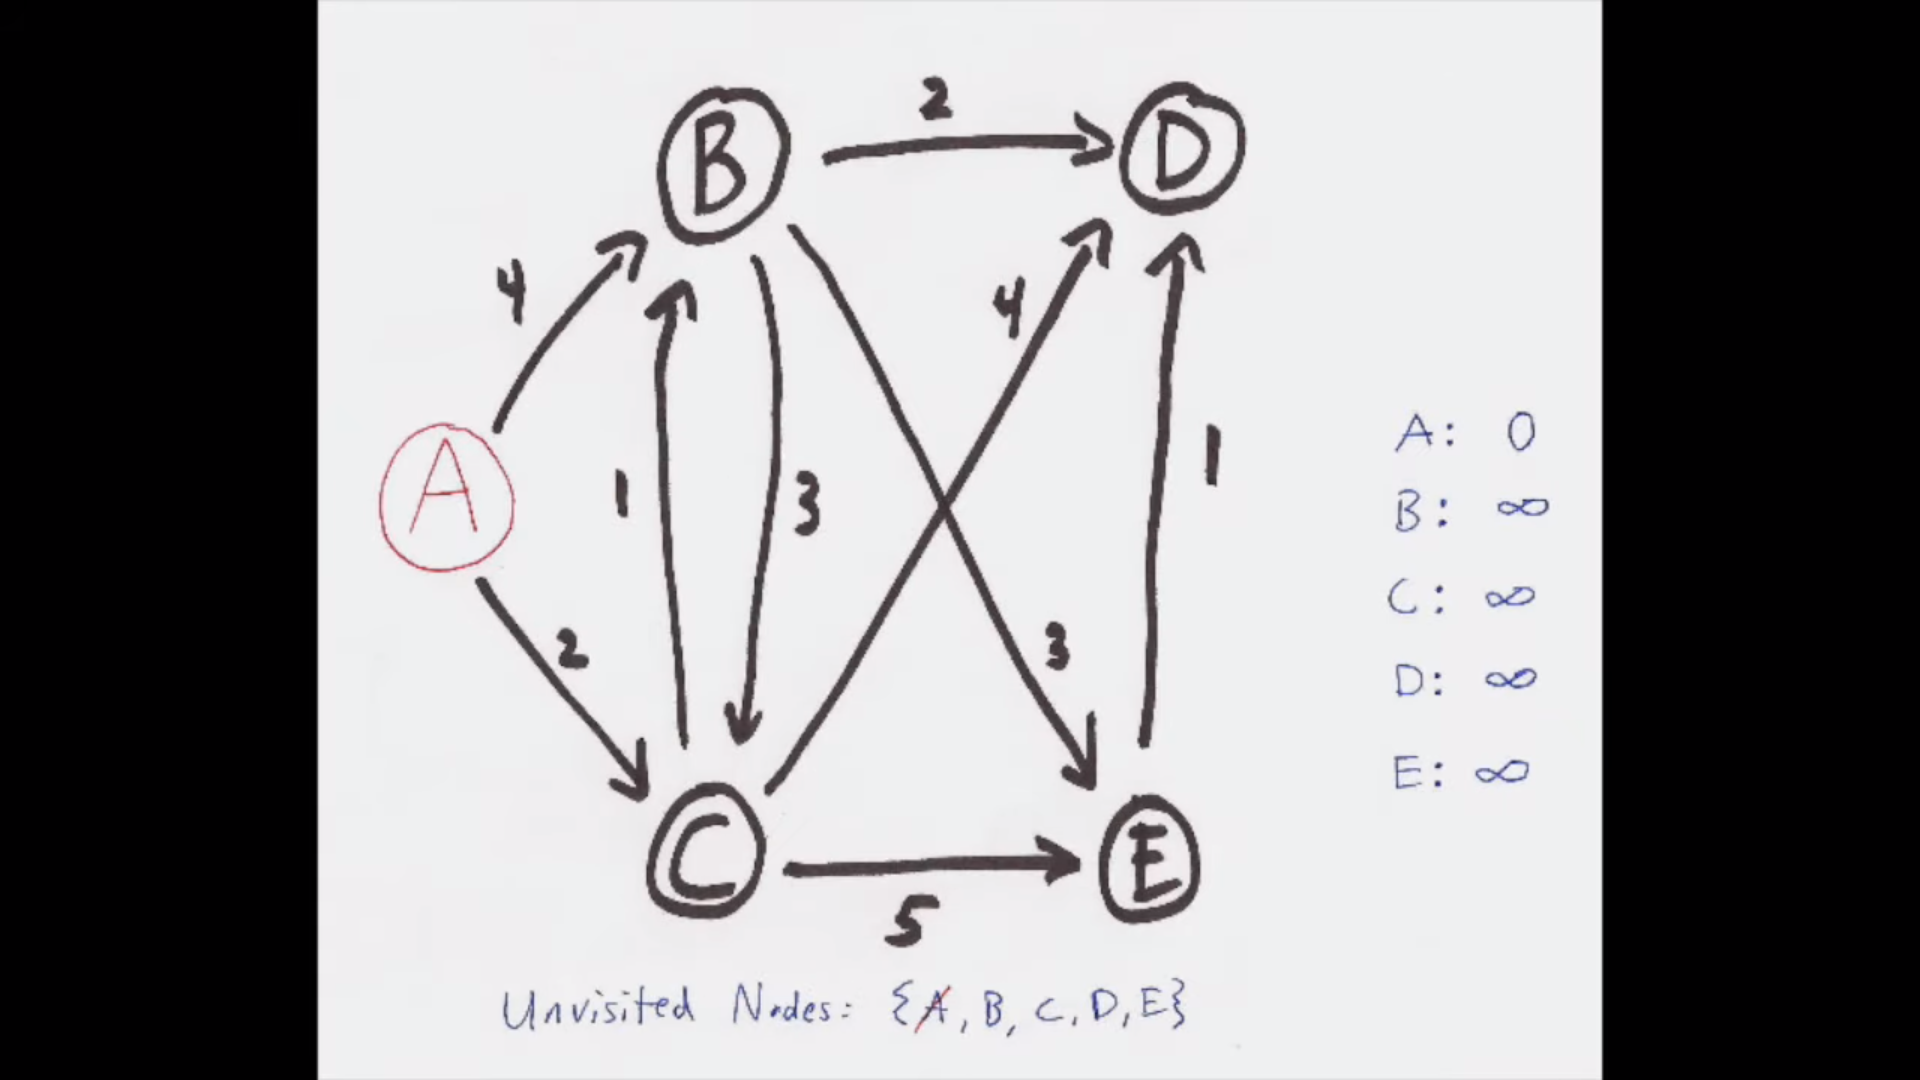 B
2
D
4
4
A
1
3
1
2
3
C
5
E
A: 0
B: ∞
C: ∞
D: ∞
E: ∞
Unvisited Nodes: {A, B, C, D, E}